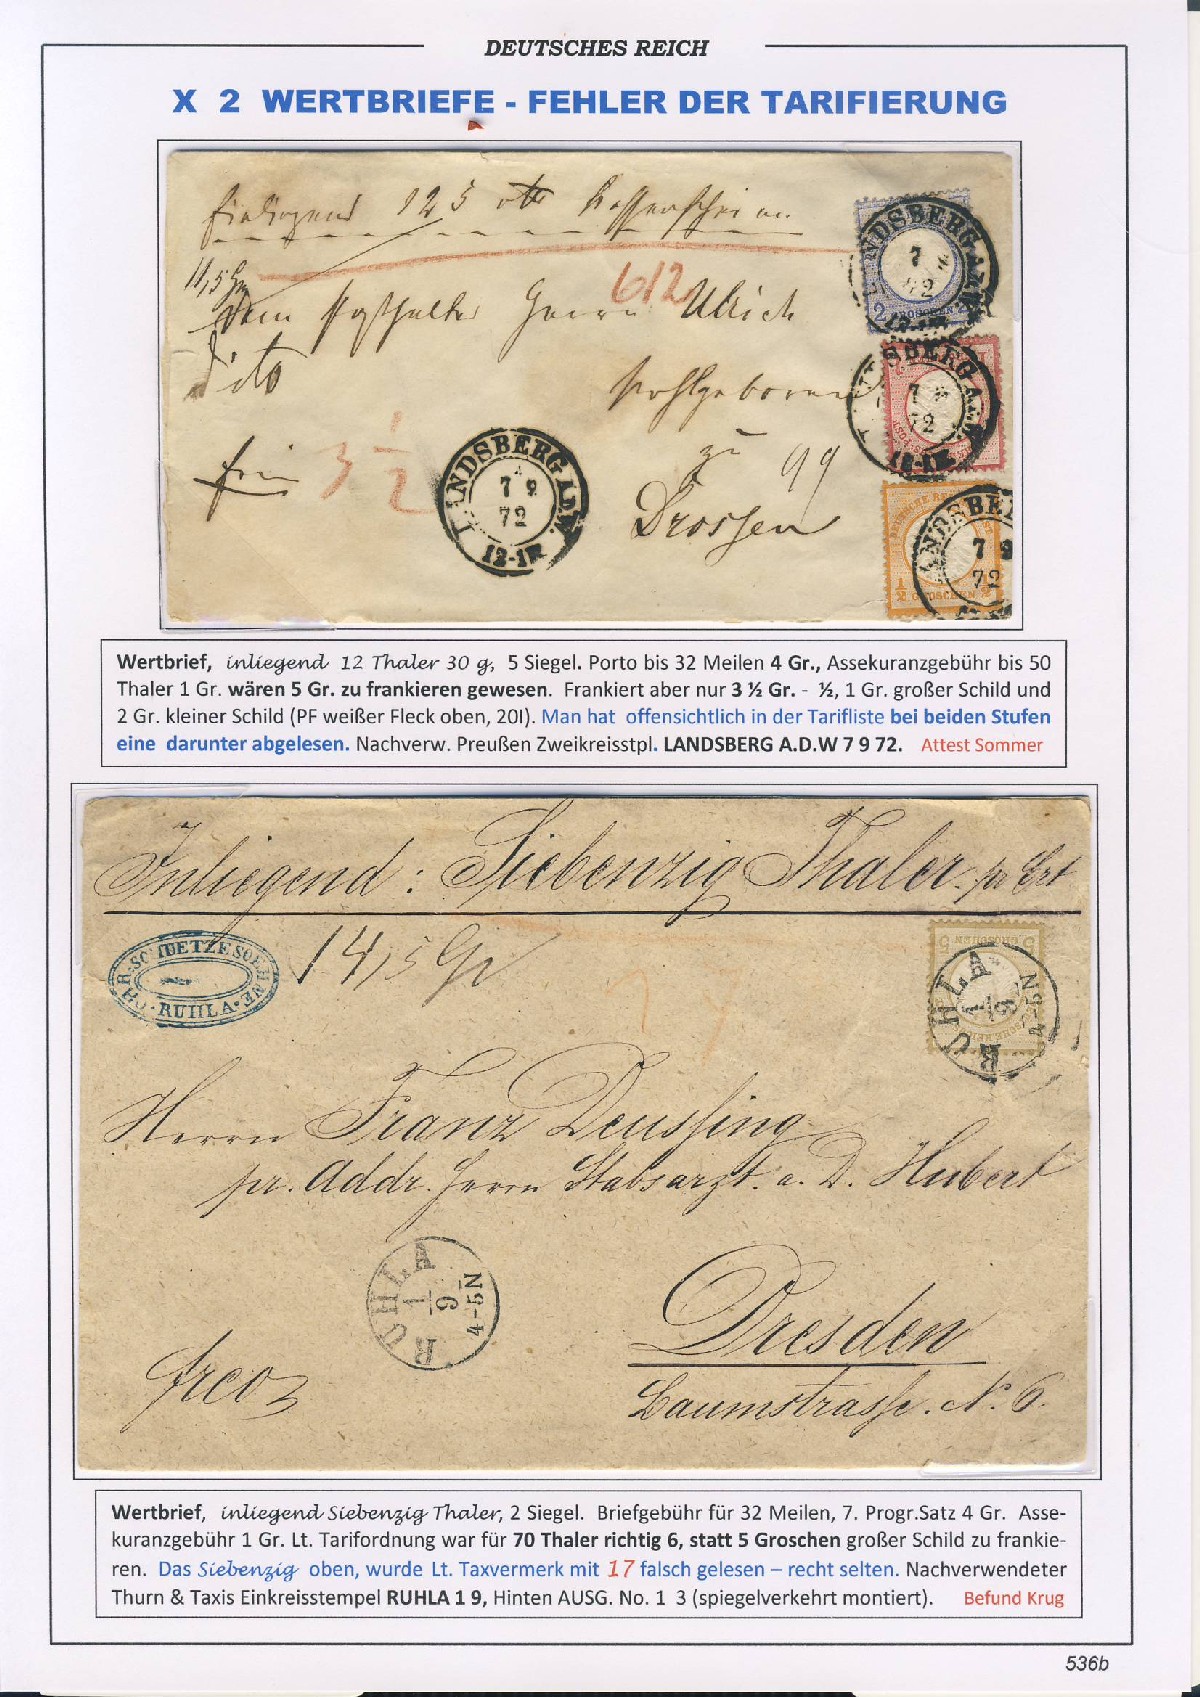 DEUTSCHES REICH
X 2 WERTBRIEFE - FEHLER DER TARIFIERUNG
125
11,5 Gr
612
Herrn Ulrich
dito
Wohlgeboren
frei 3 1/2
zu
Drossen
LANDSBERG A.D.W.
7 9
72
12-1N
LANDSBERG A.D.W.
7 9
72
12-1N
2 GROSCHEN 2
LANDSBERG A.D.W.
7 9
72
12-1N
LANDSBERG
7 9
72
1/2 GROSCHEN 1/2
Wertbrief, inliegend 12 Thaler 30 g, 5 Siegel. Porto bis 32 Meilen 4 Gr., Assekuranzgebühr bis 50
Thaler 1 Gr. wären 5 Gr. zu frankieren gewesen. Frankiert aber nur 3 ½ Gr. - ½, 1 Gr. großer Schild und
2 Gr. kleiner Schild (PF weißer Fleck oben, 20I). Man hat offensichtlich in der Tarifliste bei beiden Stufen
eine darunter abgelesen. Nachverw. Preußen Zweikreisstpl. LANDSBERG A.D.W 7 9 72. Attest Sommer
Inliegend: Siebenzig Thaler. pr Crt
14,5 Gr
RUHLA
5 GROSCHEN 5
RUHLA
1/9
4-5N
Herrn Franz Deussing
pr. Addr. Herrn Stabsarzt. a. D. Hubert
RUHLA
1/9
4-5N
Dresden
frco
Baumstrasse. N. 6.
Wertbrief, inliegend Siebenzig Thaler, 2 Siegel. Briefgebühr für 32 Meilen, 7. Progr.Satz 4 Gr. Asse-
kuranzgebühr 1 Gr. Lt. Tarifordnung war für 70 Thaler richtig 6, statt 5 Groschen großer Schild zu frankie-
ren. Das Siebenzig oben, wurde Lt. Taxvermerk mit 17 falsch gelesen – recht selten. Nachverwendeter
Thurn & Taxis Einkreisstempel RUHLA 1 9, Hinten AUSG. No. 1 3 (spiegelverkehrt montiert). Befund Krug
536b